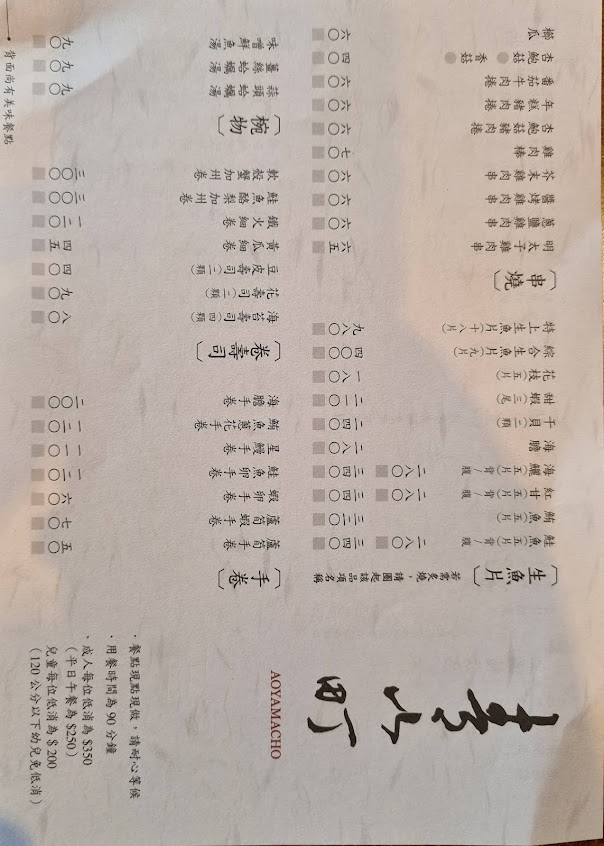 青山町
AOYAMACHO
・餐點現點現做，請耐心等候
・用餐時間為 90 分鐘
・成人每位低消為 $350
（平日午餐為 $250）
兒童每位低消為 $ 200
（120 公分以下幼兒免低消）
〔生魚片〕若需炙燒，請圈起該品項名稱
鮭魚（五片） 背 / 腹 二八〇 三四〇
鮪魚（五片） 三二〇
紅甘（五片） 背 / 腹 二八〇 三四〇
海鱺（五片） 背 / 腹 二八〇 三四〇
海膽 二八〇
干貝（三顆） 二四〇
甜蝦（三尾） 二一〇
花枝（五片） 一八〇
綜合生魚片（九片） 四〇〇
特上生魚片（十八片） 九八〇
〔串燒〕
明太子雞肉串 六五
蔥鹽雞肉串 六〇
醬烤雞肉串 六〇
芥末雞肉串 六〇
雞肉棒 七〇
杏鮑菇豬肉捲 六〇
年糕豬肉捲 六〇
番茄牛肉捲 六〇
杏鮑菇 香菇 四〇
櫛瓜 六〇
〔手卷〕
蘆筍手卷 五〇
蘆筍蝦手卷 七〇
蝦卵手卷 六〇
鮭魚卵手卷 一二〇
星鰻手卷 一二〇
鮪魚蔥花手卷 一二〇
海膽手卷 二〇〇
〔卷壽司〕
海苔壽司（四顆） 八〇
花壽司（二顆） 九〇
豆皮壽司（二顆） 四〇
黃瓜細卷 四五
鐵火細卷 一二〇
鮭魚酪梨加州卷 三〇〇
軟殼蟹加州卷 三〇〇
〔椀物〕
蒜頭蛤蠣湯 九〇
薑絲蛤蠣湯 九〇
味噌鮮魚湯 九〇
背面尚有美味餐點